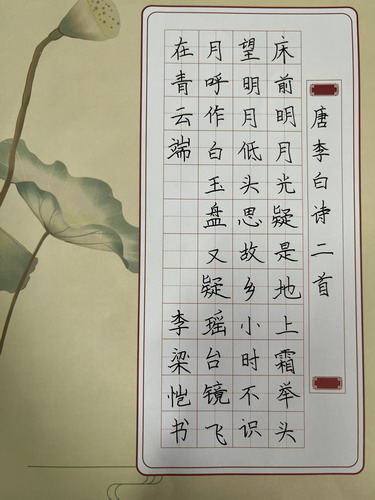 唐李白诗二首
床前明月光疑是地上霜举头
望明月低头思故乡小时不识
月呼作白玉盘又疑瑶台镜飞
在青云端
李梁恺书